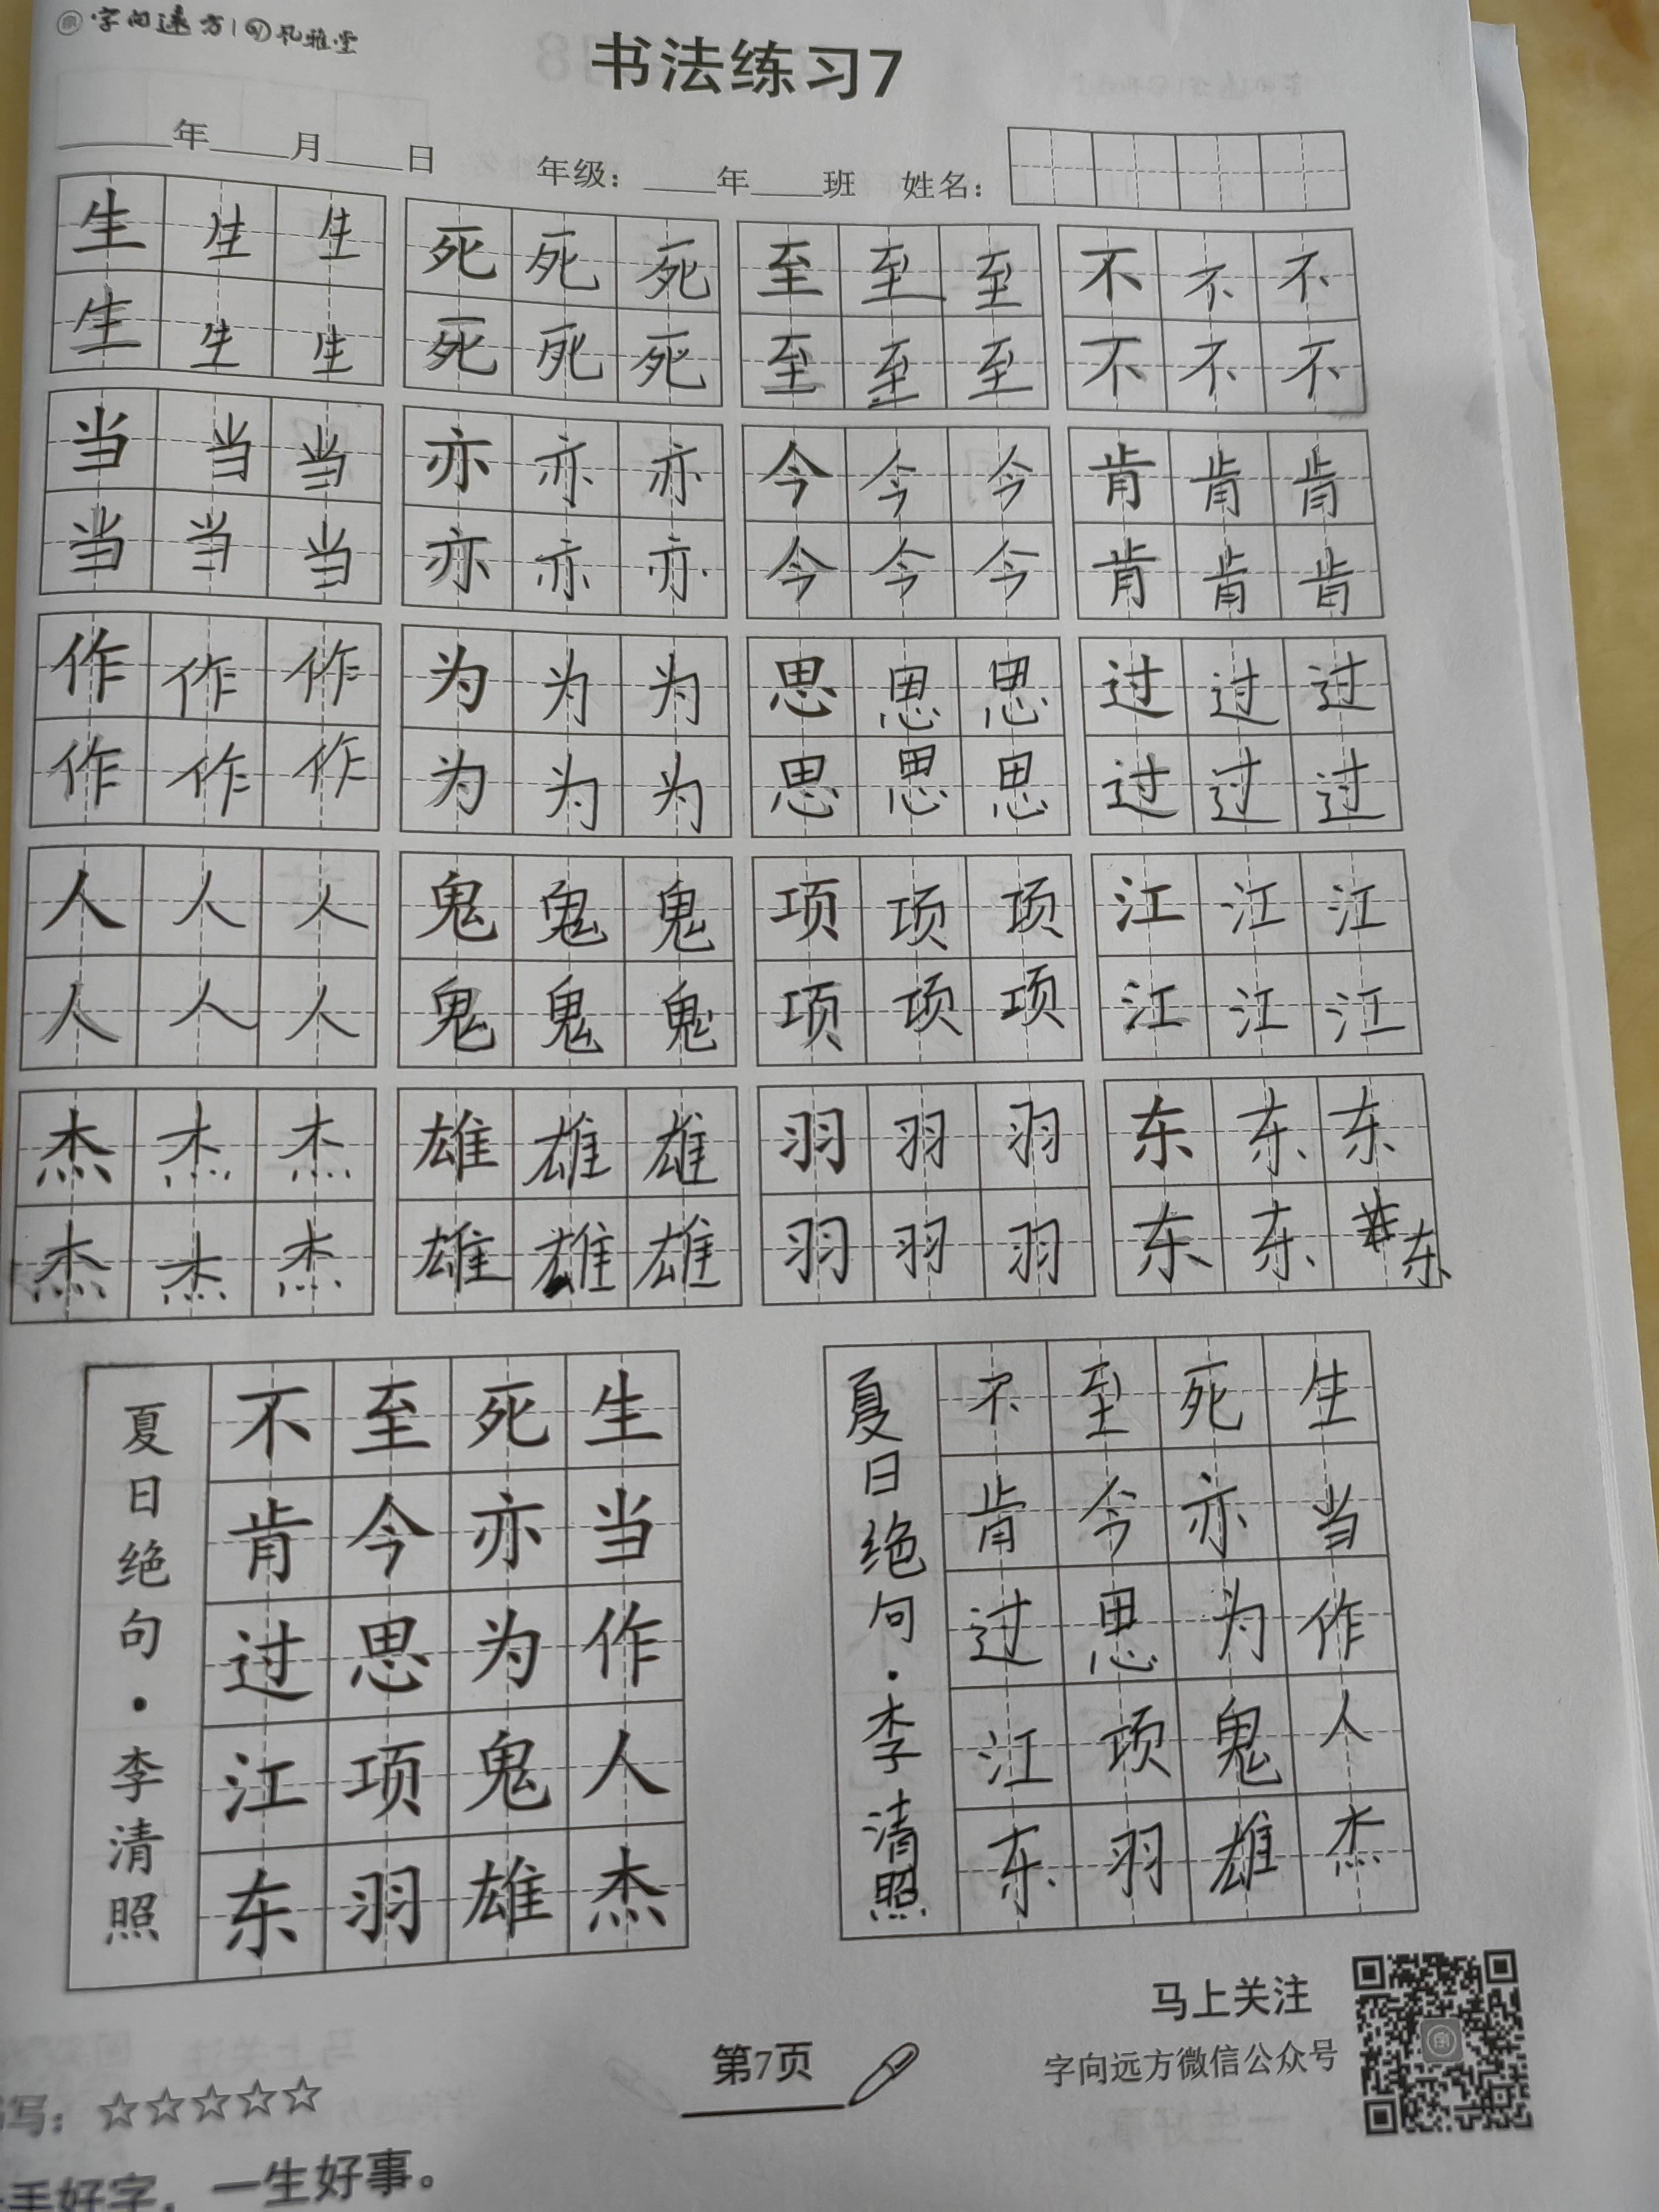 字向远方 风雅堂
书法练习7
年 月 日 年级： 年 班 姓名：
生生生 死死死 至至至 不不不
生生生 死死死 至至至 不不不
当当当 亦亦亦 今今今 肯肯肯
当当当 亦亦亦 今今今 肯肯肯
作作作 为为为 思思思 过过过
作作作 为为为 思思思 过过过
人人人 鬼鬼鬼 项项项 江江江
人人人 鬼鬼鬼 项项项 江江江
杰杰杰 雄雄雄 羽羽羽 东东东
杰杰杰 雄雄雄 羽羽羽 东东东
生当作人杰
死亦为鬼雄
至今思项羽
不肯过江东
夏日绝句·李清照
生当作人杰
死亦为鬼雄
至今思项羽
不肯过江东
夏日绝句·李清照
马上关注
字向远方微信公众号
第7页
写：☆☆☆☆☆
手好字，一生好事。